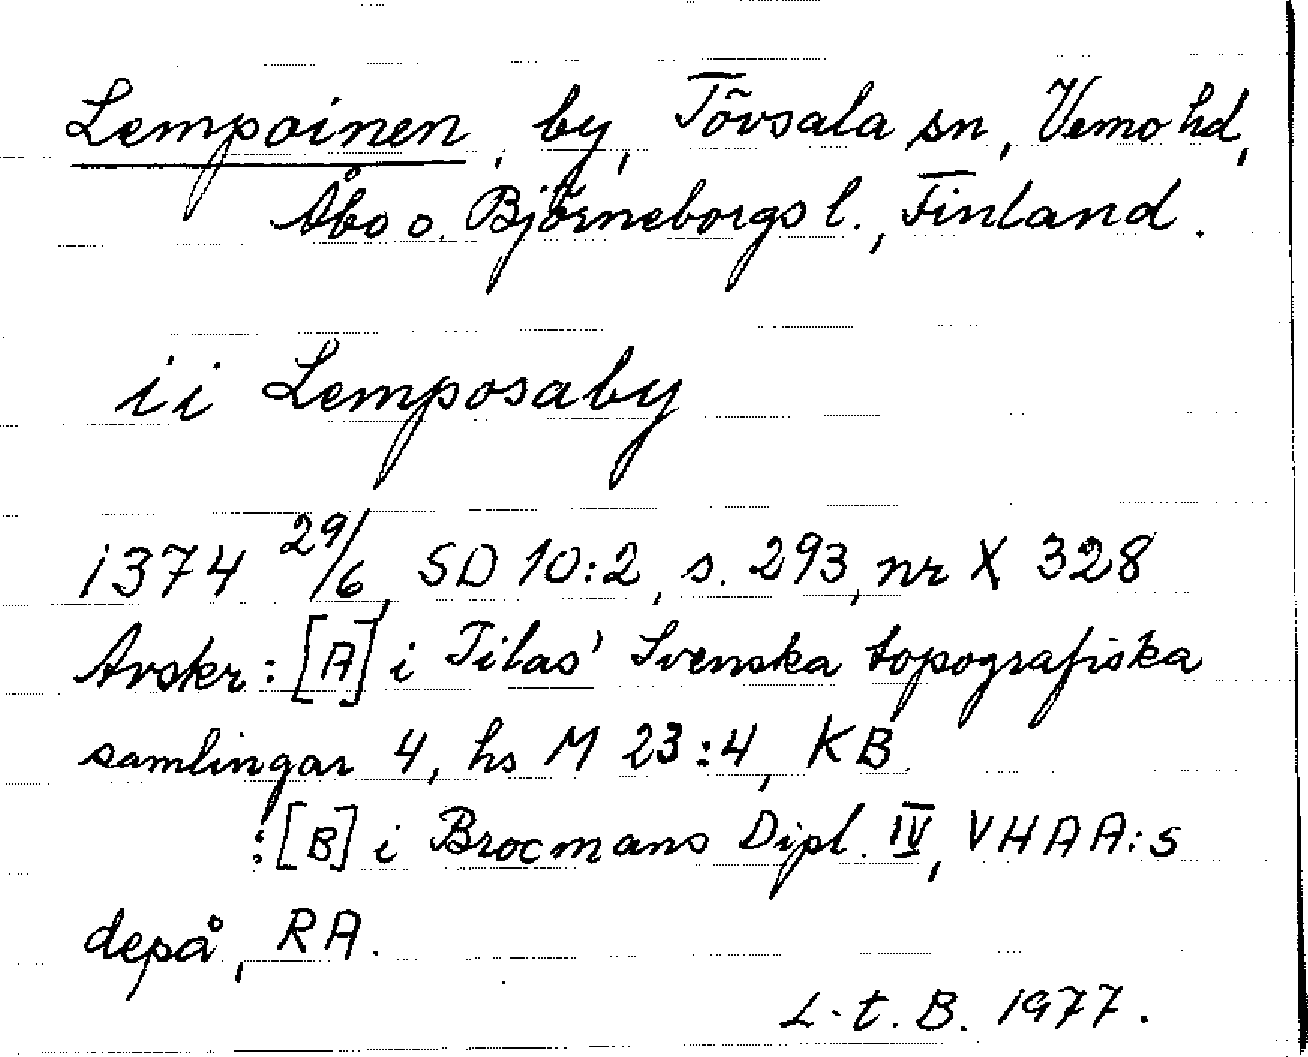 Lempoinen, by, Tövsala sn, Vemo hd,
Åbo o. Björneborgs l., Finland.
ii Lemposaby
1374 29/6, SD 10:2, s. 293, nr X 328
Avskr: [A] i Tilas' Svenska topografiska
samlingar 4, hs M 23:4, KB.
:[B] i Brocmans Dipl. IV, VHAA:s
depå, RA.
L.t.B. 1977.